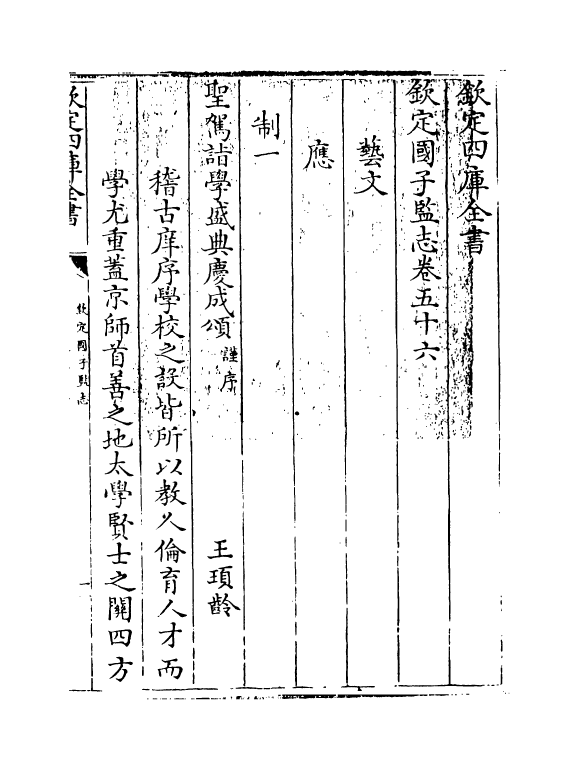 欽定四庫全書
欽定國子監志卷五十六
藝文
應
制一
聖駕詣學盛典慶成頌謹序 王頊齡
稽古庠序學校之設皆所以敎人倫育人才而
學尤重蓋京師首善之地太學賢士之關四方
欽定四庫全書
欽定國子監志
一